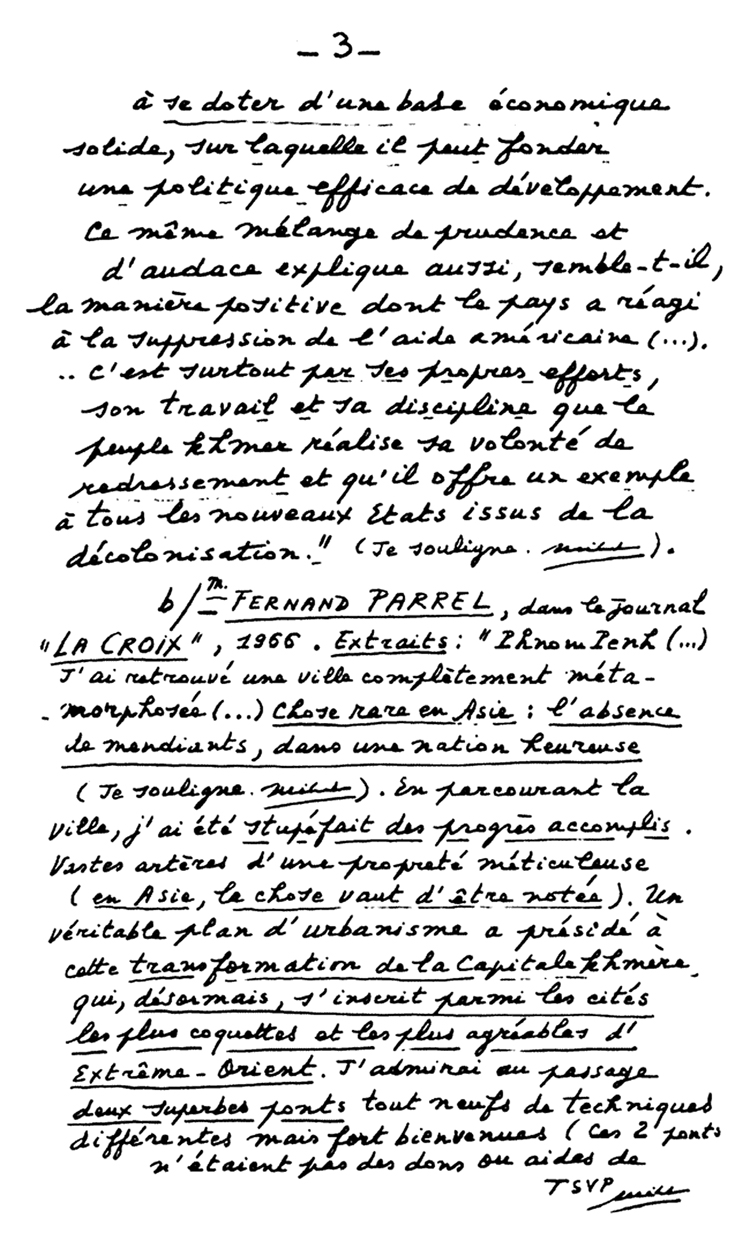 - 3 -
à se doter d'une base économique
solide, sur laquelle il peut fonder
une politique efficace de développement.
Ce même mélange de prudence et
d'audace explique aussi, semble-t-il,
la manière positive dont le pays a réagi
à la suppression de l'aide américaine (...).
.. C'est surtout par ses propres efforts,
son travail et sa discipline que le
peuple khmer réalise sa volonté de
redressement et qu'il offre un exemple
à tous les nouveaux Etats issus de la
décolonisation." (Je souligne. ).
b/ M. FERNAND PARREL, dans le journal
"LA CROIX", 1966. Extraits : "Phnom Penh (...)
J'ai retrouvé une ville complètement méta-
-morphosée (...) Chose rare en Asie : l'absence
de mendiants, dans une nation heureuse
(Je souligne. ). En parcourant la
ville, j'ai été stupéfait des progrès accomplis.
Vastes artères d'une propreté méticuleuse
(en Asie, la chose vaut d'être notée). Un
véritable plan d'urbanisme a présidé à
cette transformation de la Capitale khmère
qui, désormais, s'inscrit parmi les cités
les plus coquettes et les plus agréables d'
Extrême-Orient. J'admirai au passage
deux superbes ponts tout neufs de techniques
différentes mais fort bienvenues (Ces 2 ponts
n'étaient pas des dons ou aides de
TSVP